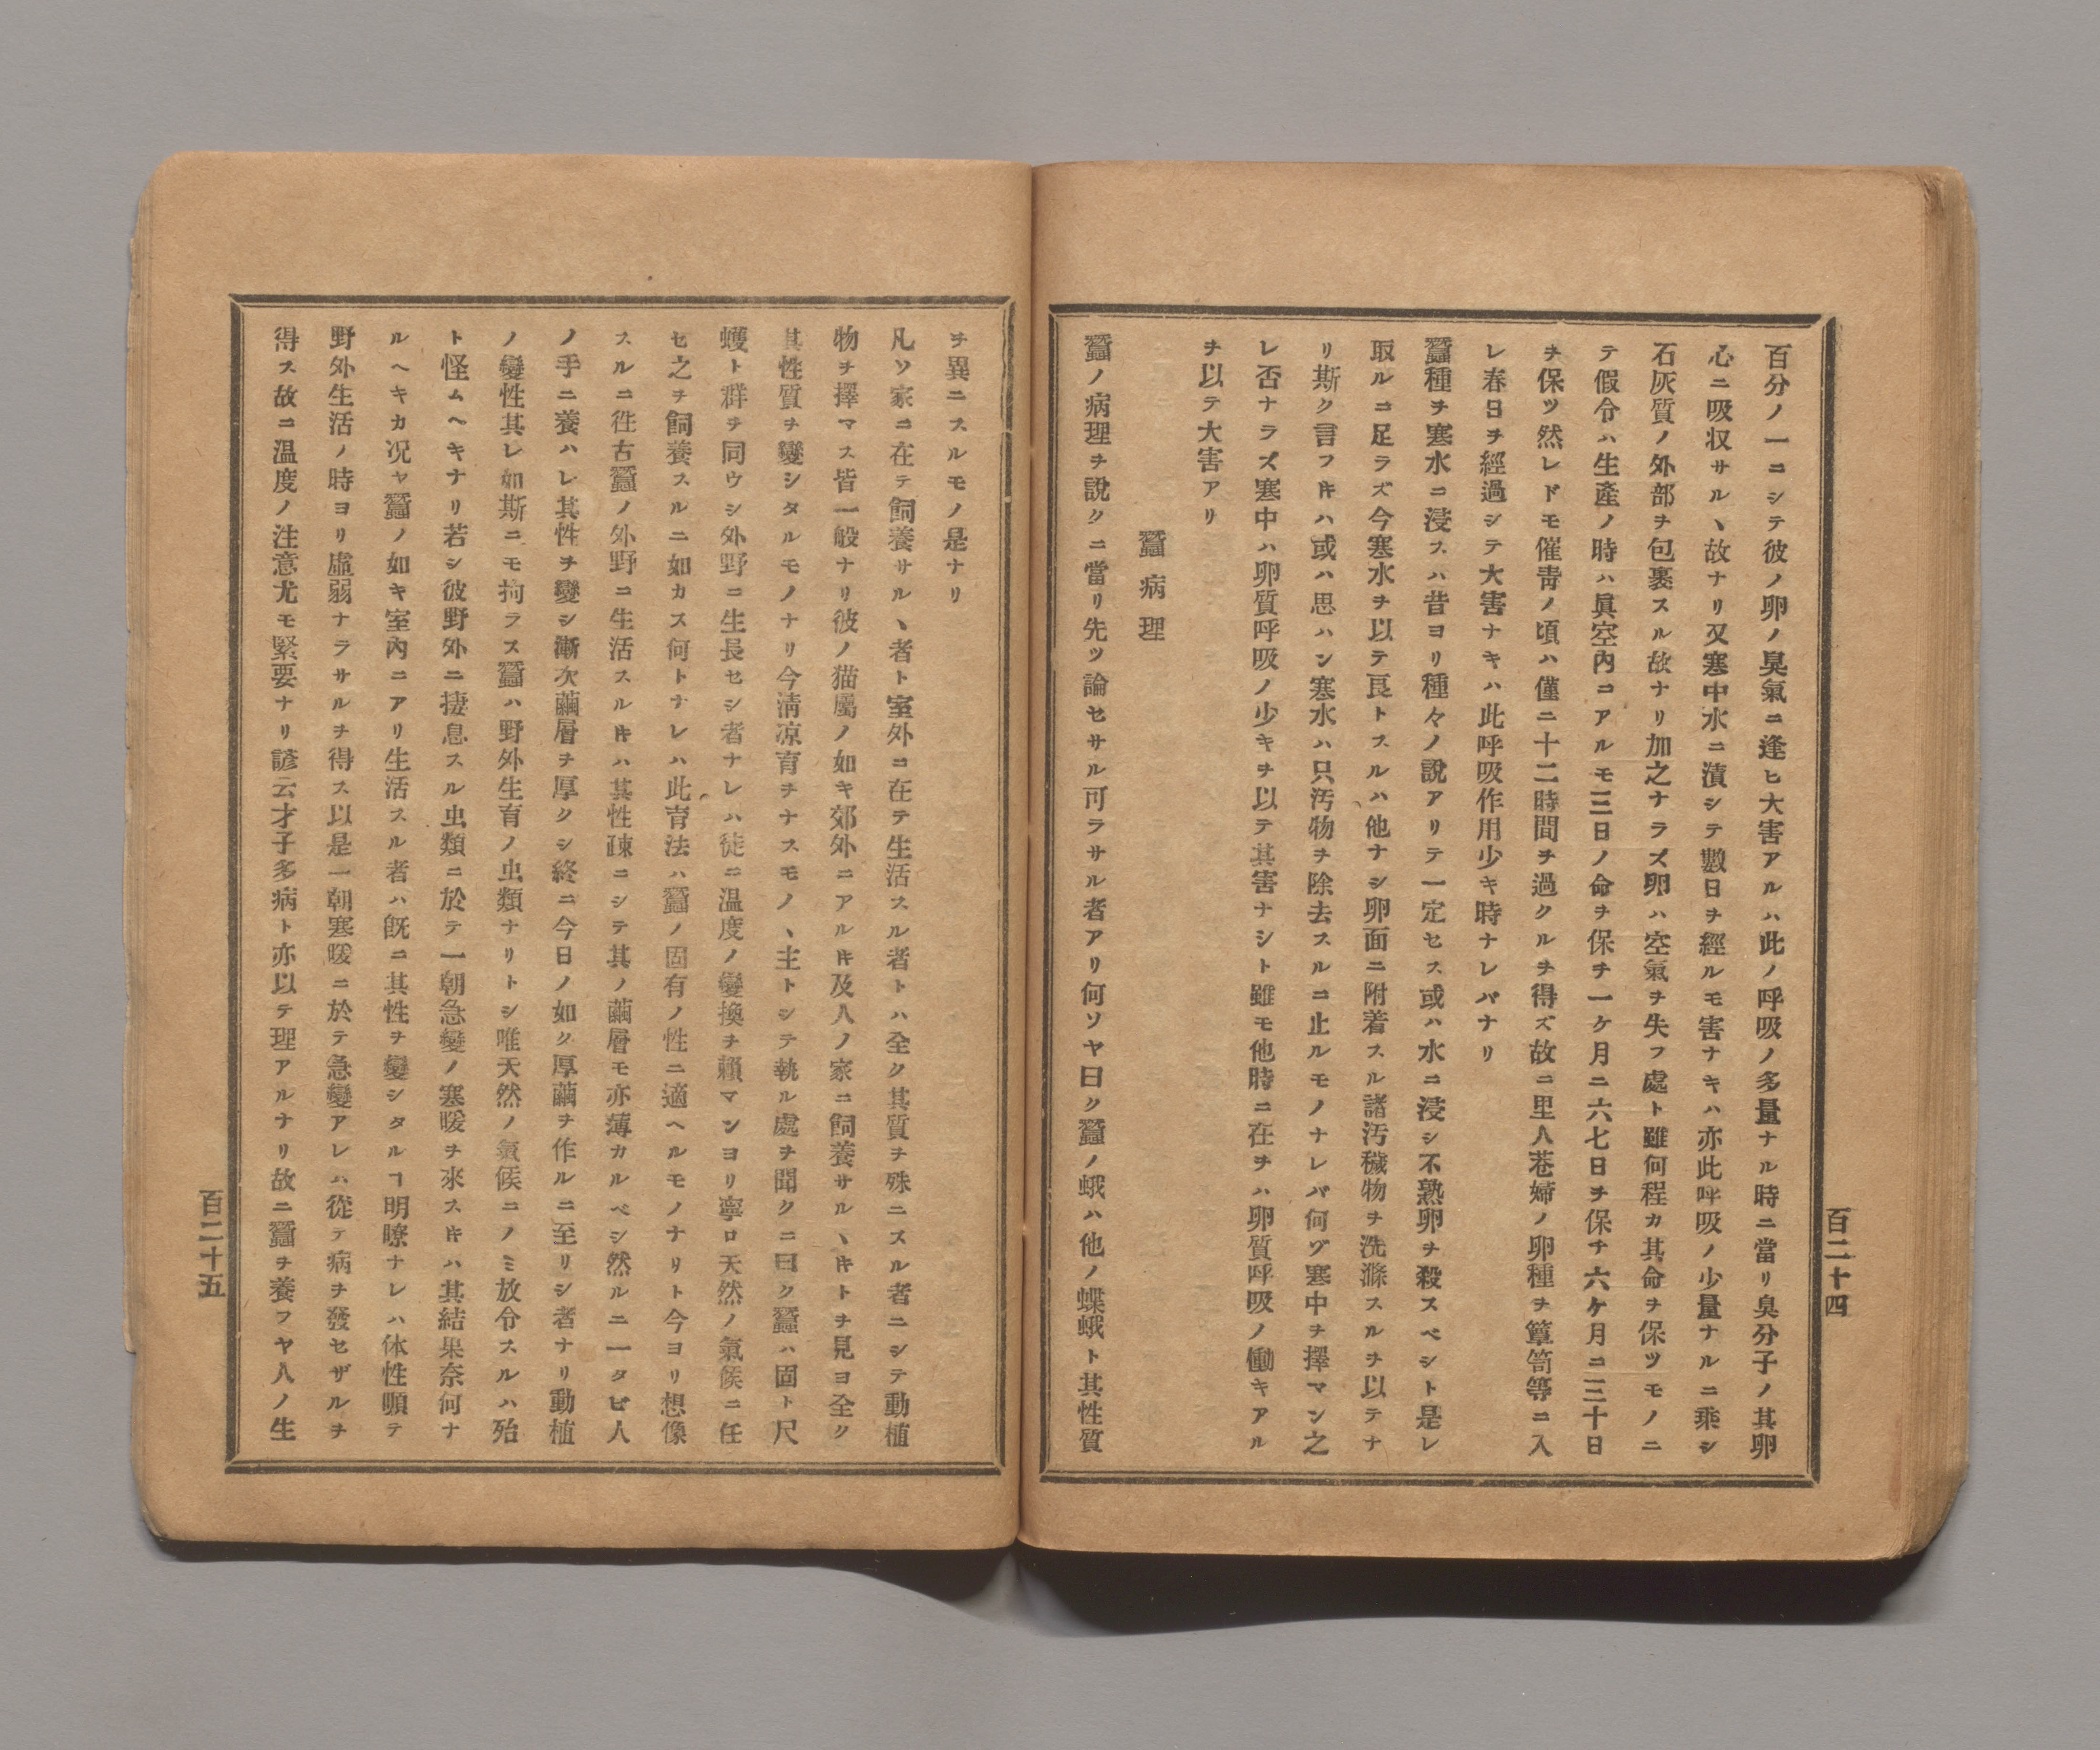 百二十四
百分ノ一ニシテ彼ノ卵ノ臭氣ニ逢ヒ大害アルハ此ノ呼吸ノ多量ナル時ニ當リ臭分子ノ其卵
心ニ吸収サルヽ故ナリ又寒中水ニ漬シテ數日ヲ經ルモ害ナキハ亦此呼吸ノ少量ナルニ乘シ
石灰質ノ外部ヲ包裹スル故ナリ加之ナラズ卵ハ空氣ヲ失フ處ト雖何程カ其命ヲ保ツモノニ
テ假令ハ生產ノ時ハ眞空內ニアルモ三日ノ命ヲ保チ一ケ月ニ六七日ヲ保チ六ケ月ニ三十日
ヲ保ツ然レドモ催靑ノ頃ハ僅ニ十二時間ヲ過クルヲ得ズ故ニ里人巷婦ノ卵種ヲ簞笥等ニ入
レ春日ヲ經過シテ大害ナキハ此呼吸作用少キ時ナレバナリ
蠶種ヲ寒水ニ浸スハ昔ヨリ種々ノ說アリテ一定セス或ハ水ニ浸シ不熟卵ヲ殺スベシト是レ
取ルニ足ラズ今寒水ヲ以テ良トスルハ他ナシ卵面ニ附着スル諸汚穢物ヲ洗滌スルヲ以テナ
リ斯ク言フ𪜈ハ或ハ思ハン寒水ハ只汚物ヲ除去スルニ止ルモノナレバ何ヅ寒中ヲ擇マン之
レ否ナラズ寒中ハ卵質呼吸ノ少キヲ以テ其害ナシト雖モ他時ニ在ヲハ卵質呼吸ノ働キアル
ヲ以テ大害アリ
蠶病理
蠶ノ病理ヲ說クニ當リ先ツ論セサル可ラサル者アリ何ソヤ曰ク蠶ノ蛾ハ他ノ蝶蛾ト其性質
ヲ異ニスルモノ是ナリ
凡ソ家ニ在テ飼養サルヽ者ト室外ニ在テ生活スル者トハ全ク其質ヲ殊ニスル者ニシテ動植
物ヲ擇マス皆一般ナリ彼ノ猫屬ノ如キ郊外ニアル𪜈及人ノ家ニ飼養サルヽ𪜈トヲ見ヨ全ク
其性質ヲ變シタルモノナリ今淸凉育ヲナスモノヽ主トシテ執ル處ヲ聞クニ曰ク蠶ハ固ト尺
蠖ト群ヲ同ウシ外野ニ生長セシ者ナレハ徒ニ温度ノ變換ヲ賴マンヨリ寧ロ天然ノ氣候ニ任
セ之ヲ飼養スルニ如カス何トナレハ此育法ハ蠶ノ固有ノ性ニ適ヘルモノナリト今ヨリ想像
スルニ徃古蠶ノ外野ニ生活スル𪜈ハ其性疎ニシテ其ノ繭層モ亦薄カルベシ然ルニ一タビ人
ノ手ニ養ハレ其性ヲ變シ漸次繭層ヲ厚クシ終ニ今日ノ如ク厚繭ヲ作ルニ至リシ者ナリ動植
ノ變性其レ如斯ニモ拘ラス蠶ハ野外生育ノ虫類ナリトシ唯天然ノ氣候ニノミ放令スルハ殆
ト怪ムヘキナリ若シ彼野外ニ捿息スル虫類ニ於テ一朝急變ノ寒暖ヲ來ス𪜈ハ其結果奈何ナ
ルヘキカ况ヤ蠶ノ如キ室內ニアリ生活スル者ハ旣ニ其性ヲ變シタルヿ明瞭ナレハ体性顋テ
野外生活ノ時ヨリ虛弱ナラサルヲ得ス以是一朝寒暖ニ於テ急變アレハ從テ病ヲ發セザルヲ
得ス故ニ温度ノ注意尤モ緊要ナリ諺云才子多病ト亦以テ理アルナリ故ニ蠶ヲ養フヤ人ノ生
百二十五